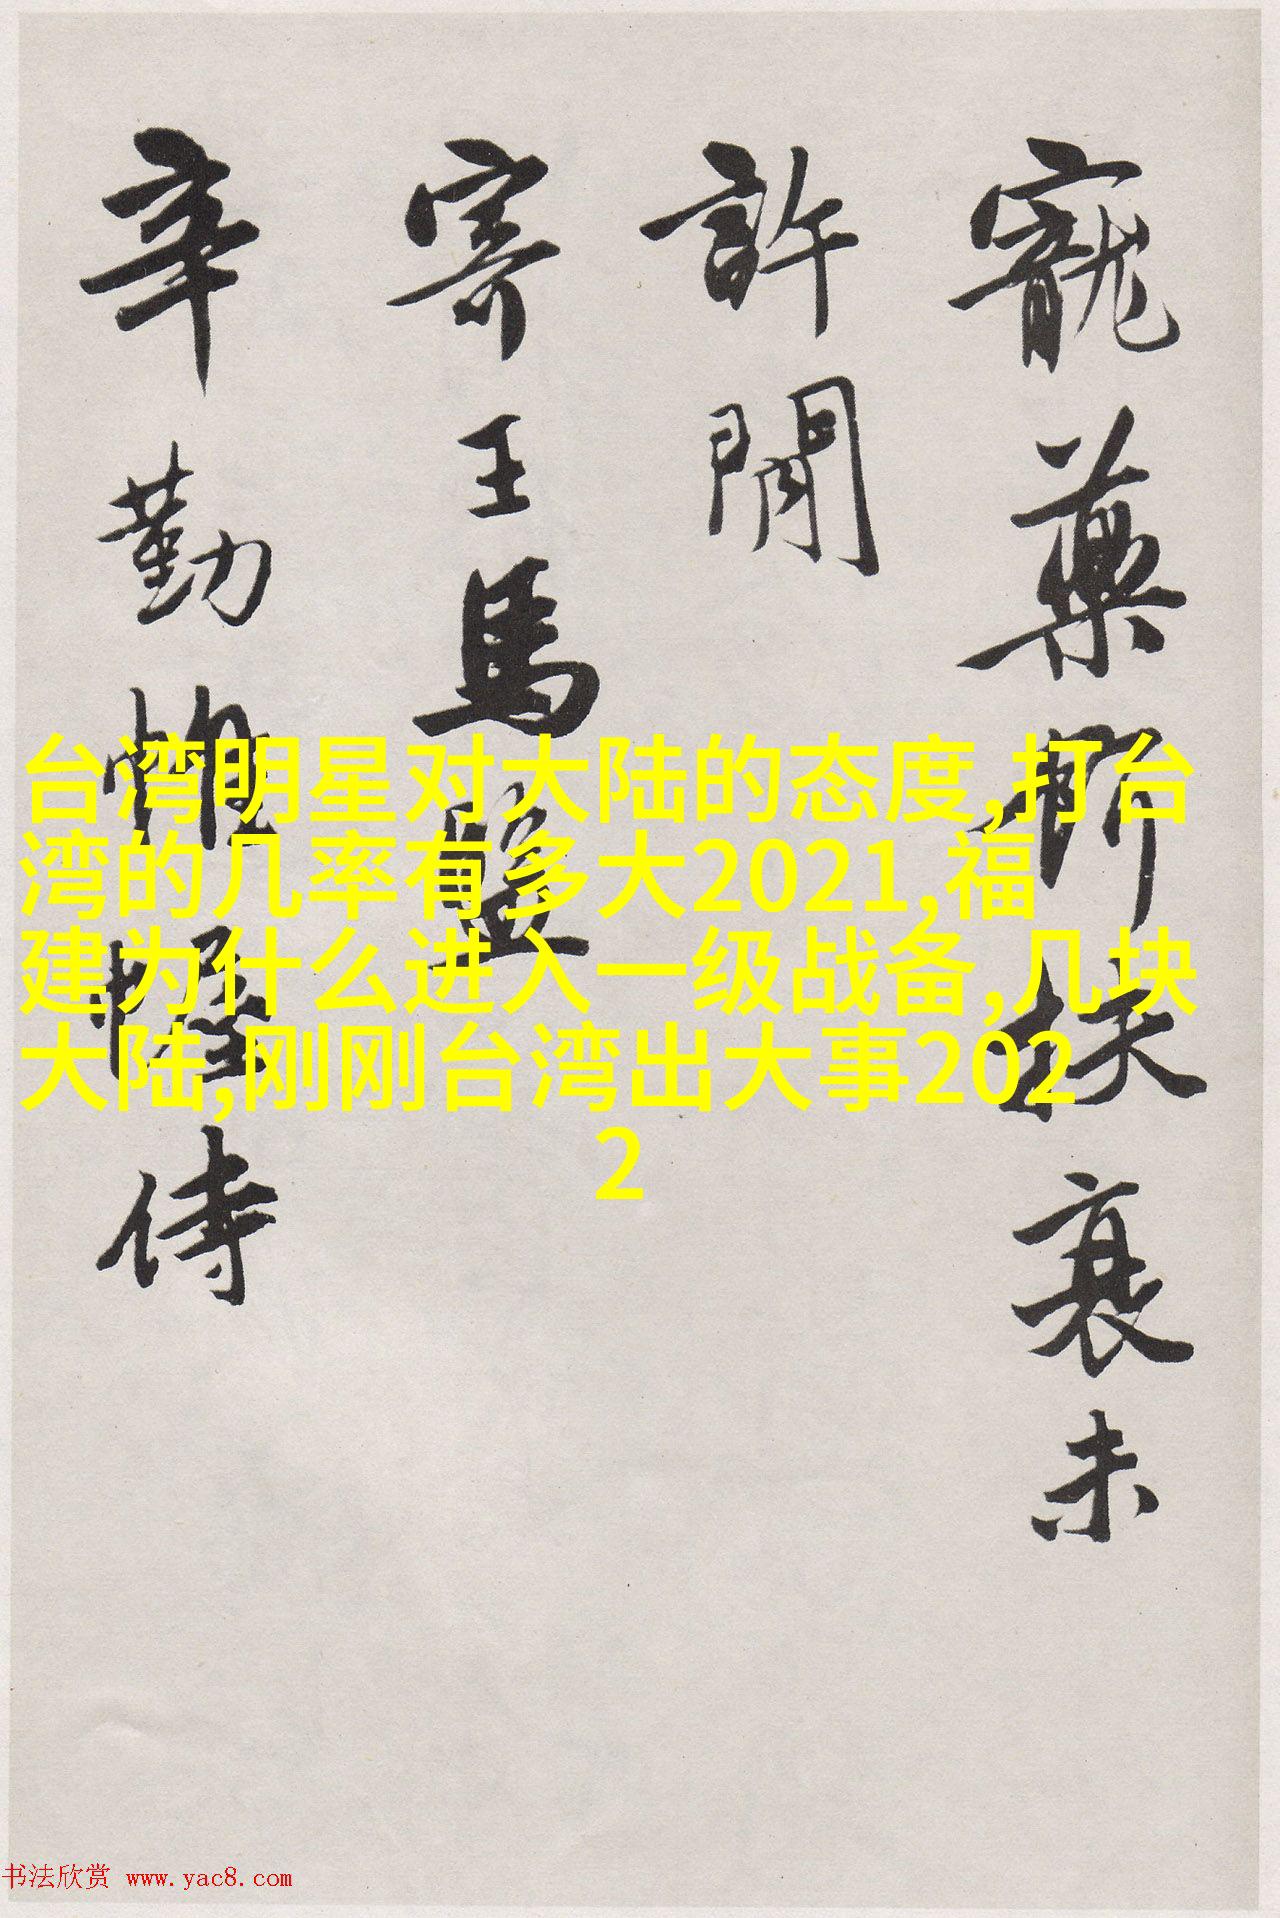 寵藥所扶衰未
許閒
寄王馬盤
辛勤帷幄侍
台湾明星对大陆的态度,打台
湾的几率有多大2021,福
建为什么进入一级战备,几块
大陆,刚刚台湾出大事202
2
书法欣赏 www.yac8.com